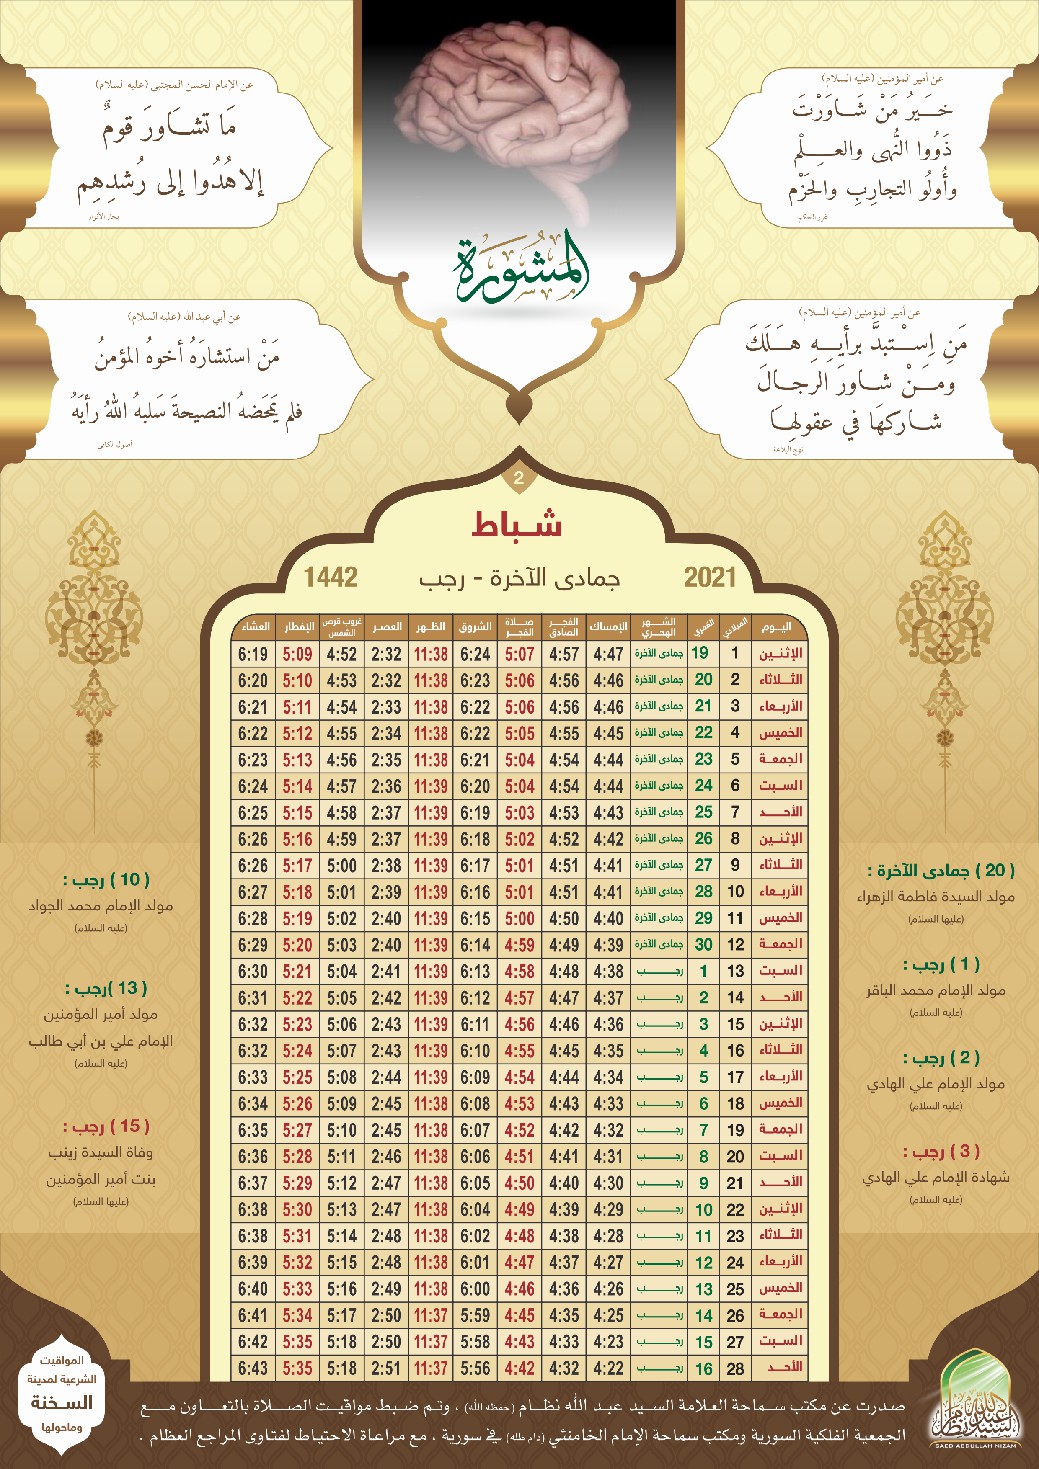 عن أمير المؤمنين (عليه السلام)
خَيرُ مَنْ شَاوَرْتَ
ذَوُوا النُّهى والعِلْم
وأُولُو التجارِبِ والحَزْم
غرر الحكم
عن الإمام الحسن المجتبى (عليه السلام)
مَا تَشَاوَرَ قومٌ
إلا هُدُوا إلى رُشدِهِم
بحار الأنوار
المَشُورَة
عن أمير المؤمنين (عليه السلام)
مَنِ اِسْتبدَّ برأيِهِ هَلَكَ
ومَنْ شاورَ الرجالَ
شاركهَا في عقولِهَا
نهج البلاغة
عن أبي عبد الله (عليه السلام)
مَنْ استشارَهُ أخوهُ المؤمنُ
فلم يَمحَضهُ النصيحةَ سَلبهُ اللهُ رأيَهُ
أصول الكافي
2
شباط
2021 جمادى الآخرة - رجب 1442
اليوم الميلادي القمري الشهر الهجري الإمساك الفجر الصادق صلاة الفجر الشروق الظهر العصر غروب قرص الشمس الإفطار العشاء
الإثنين 1 19 جمادى الآخرة 4:47 4:57 5:07 6:24 11:38 2:32 4:52 5:09 6:19
الثلاثاء 2 20 جمادى الآخرة 4:46 4:56 5:06 6:23 11:38 2:32 4:53 5:10 6:20
الأربعاء 3 21 جمادى الآخرة 4:46 4:56 5:06 6:22 11:38 2:33 4:54 5:11 6:21
الخميس 4 22 جمادى الآخرة 4:45 4:55 5:05 6:22 11:38 2:34 4:55 5:12 6:22
الجمعة 5 23 جمادى الآخرة 4:44 4:54 5:04 6:21 11:38 2:35 4:56 5:13 6:23
السبت 6 24 جمادى الآخرة 4:44 4:54 5:04 6:20 11:39 2:36 4:57 5:14 6:24
الأحد 7 25 جمادى الآخرة 4:43 4:53 5:03 6:19 11:39 2:37 4:58 5:15 6:25
الإثنين 8 26 جمادى الآخرة 4:42 4:52 5:02 6:18 11:39 2:37 4:59 5:16 6:26
الثلاثاء 9 27 جمادى الآخرة 4:41 4:51 5:01 6:17 11:39 2:38 5:00 5:17 6:26
الأربعاء 10 28 جمادى الآخرة 4:41 4:51 5:01 6:16 11:39 2:39 5:01 5:18 6:27
الخميس 11 29 جمادى الآخرة 4:40 4:50 5:00 6:15 11:39 2:40 5:02 5:19 6:28
الجمعة 12 30 جمادى الآخرة 4:39 4:49 4:59 6:14 11:39 2:40 5:03 5:20 6:29
السبت 13 1 رجب 4:38 4:48 4:58 6:13 11:39 2:41 5:04 5:21 6:30
الأحد 14 2 رجب 4:37 4:47 4:57 6:12 11:39 2:42 5:05 5:22 6:31
الإثنين 15 3 رجب 4:36 4:46 4:56 6:11 11:39 2:43 5:06 5:23 6:32
الثلاثاء 16 4 رجب 4:35 4:45 4:55 6:10 11:39 2:43 5:07 5:24 6:32
الأربعاء 17 5 رجب 4:34 4:44 4:54 6:09 11:39 2:44 5:08 5:25 6:33
الخميس 18 6 رجب 4:33 4:43 4:53 6:08 11:38 2:45 5:09 5:26 6:34
الجمعة 19 7 رجب 4:32 4:42 4:52 6:07 11:38 2:45 5:10 5:27 6:35
السبت 20 8 رجب 4:31 4:41 4:51 6:06 11:38 2:46 5:11 5:28 6:36
الأحد 21 9 رجب 4:30 4:40 4:50 6:05 11:38 2:47 5:12 5:29 6:37
الإثنين 22 10 رجب 4:29 4:39 4:49 6:04 11:38 2:47 5:13 5:30 6:38
الثلاثاء 23 11 رجب 4:28 4:38 4:48 6:02 11:38 2:48 5:14 5:31 6:38
الأربعاء 24 12 رجب 4:27 4:37 4:47 6:01 11:38 2:48 5:15 5:32 6:39
الخميس 25 13 رجب 4:26 4:36 4:46 6:00 11:38 2:49 5:16 5:33 6:40
الجمعة 26 14 رجب 4:25 4:35 4:45 5:59 11:37 2:50 5:17 5:34 6:41
السبت 27 15 رجب 4:23 4:33 4:43 5:58 11:37 2:50 5:18 5:35 6:42
الأحد 28 16 رجب 4:22 4:32 4:42 5:56 11:37 2:51 5:18 5:35 6:43
( 20 ) جمادى الآخرة :
مولد السيدة فاطمة الزهراء
(عليها السلام)
( 1 ) رجب :
مولد الإمام محمد الباقر
(عليه السلام)
( 2 ) رجب :
مولد الإمام علي الهادي
(عليه السلام)
( 3 ) رجب :
شهادة الإمام علي الهادي
(عليه السلام)
( 10 ) رجب :
مولد الإمام محمد الجواد
(عليه السلام)
( 13 )رجب :
مولد أمير المؤمنين
الإمام علي بن أبي طالب
(عليه السلام)
( 15 ) رجب :
وفاة السيدة زينب
بنت أمير المؤمنين
(عليها السلام)
صدرت عن مكتب سماحة العلامة السيد عبد الله نظام (حفظه الله) ، وتم ضبط مواقيت الصلاة بالتعاون مع
الجمعية الفلكية السورية ومكتب سماحة الإمام الخامنئي (دام ظله) في سورية ، مع مراعاة الاحتياط لفتاوى المراجع العظام .
المواقيت
الشرعية لمدينة
السخنة
وماحولها
السيد عبدالله نظام
SAED ABDULLAH NIZAM